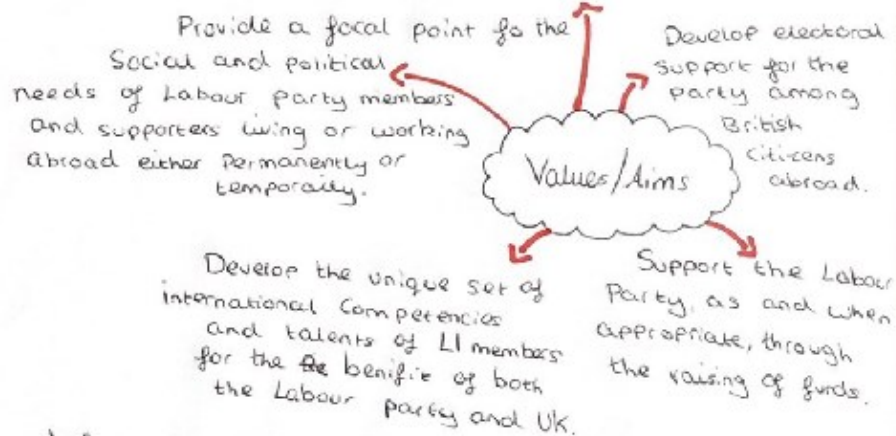 Provide a focal point fo the
Social and political
needs of Labour party members
and supporters living or working
abroad either Permanently or
temporaily.
Develop electoral
support for the
party among
British
Citizens
abroad.
Values/Aims
Develop the unique set of
international Competencies
and talents of LI members
for the benifit of both
the Labour party and UK.
Support the Labour
Party, as and when
appropriate, through
the raising of funds.